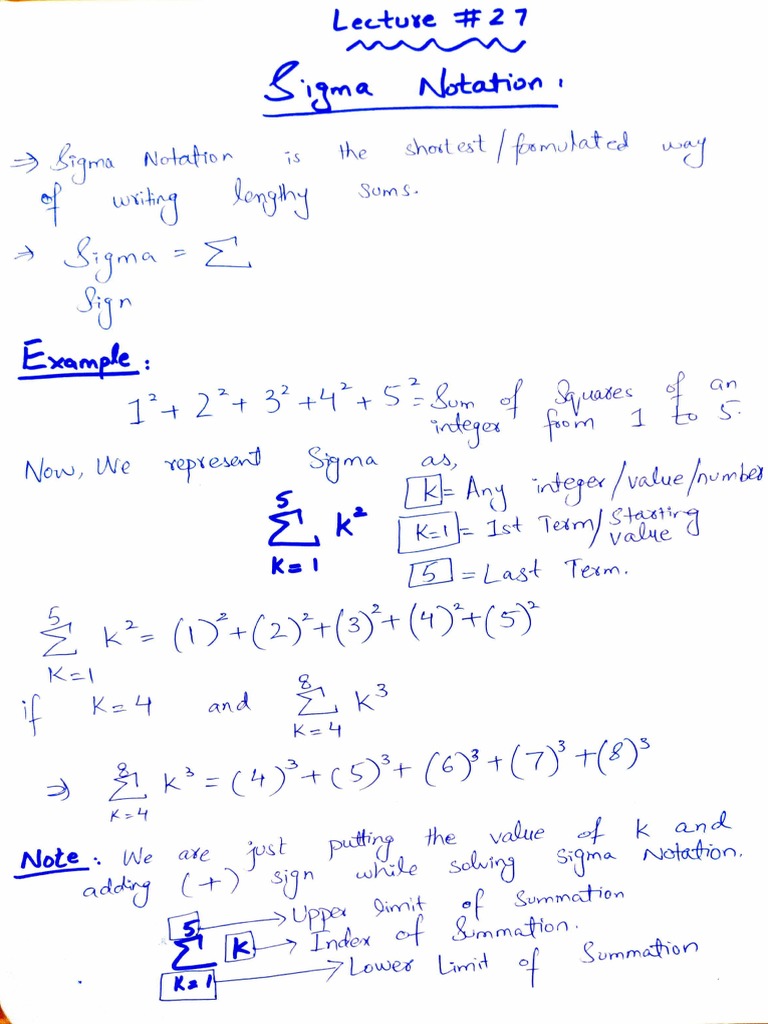 Lecture #27
Sigma Notation.
⇒ Sigma Notation is the shortest/formulated way
of writing lengthy sums.
⇒ Sigma = Σ
Sign
Example:
1² + 2² + 3² + 4² + 5² = Sum of Squares of an
integer from 1 to 5.
Now, We represent Sigma as,
5
Σ k²
K=1
K = Any integer/value/number
K=1 = 1st Term/Starting value
5 = Last Term.
5
Σ k² = (1)² + (2)² + (3)² + (4)² + (5)²
K=1
if K=4 and
8
Σ K³
K=4
8
⇒ Σ K³ = (4)³ + (5)³ + (6)³ + (7)³ + (8)³
K=4
Note: We are just putting the value of k and
adding (+) sign while solving sigma Notation.
5 → Upper limit of summation
Σ K → Index of Summation.
K=1 → Lower Limit of Summation